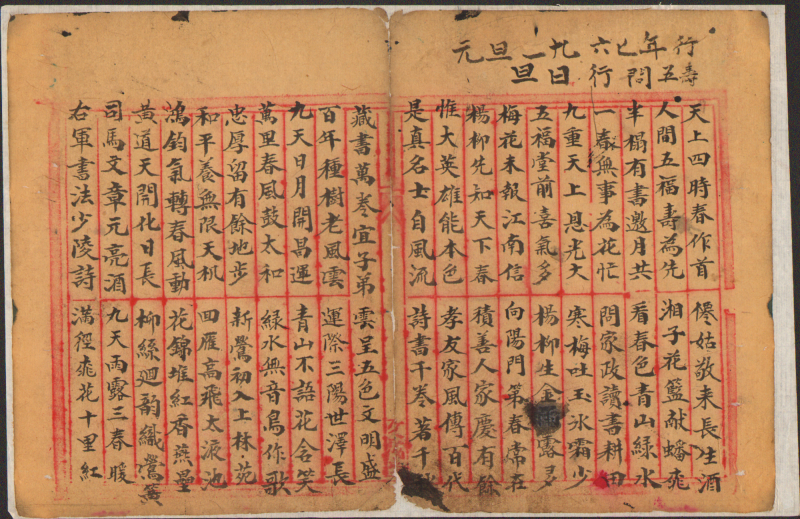 行年七六九一旦元
壽五問行日旦
天上四時春作首 僊姑敬来長生酒
人間五福壽為先 湘子花籃献蟠桃
半榻有書邀月共 看春色青山緑水
一春無事為花忙 問家政讀書耕田
九重天上恩光大 寒梅吐玉氷霜少
五福堂前喜氣多 楊柳生金雨露多
梅花未報江南信 向陽門第春常在
楊柳先知天下春 積善人家慶有餘
惟大英雄能本色 孝友家風傳百代
是真名士自風流 詩書千卷著千
藏書萬卷宜子弟 雲呈五色文明盛
百年種樹老風雲 運際三陽世澤長
九天日月開昌運 青山不語花含笑
萬里春風鼓太和 緑水無音鳥作歌
忠厚留有餘地步 新鶯初入上林苑
和平養無限天机 回雁高飛太液池
鴻鈞氣轉春風動 花錦堆紅香燕壘
黄道天開化日長 柳絲廻韵織鶯簧
司馬文章元亮酒 九天雨露三春暖
右軍書法少陵詩 滿徑桃花十里紅